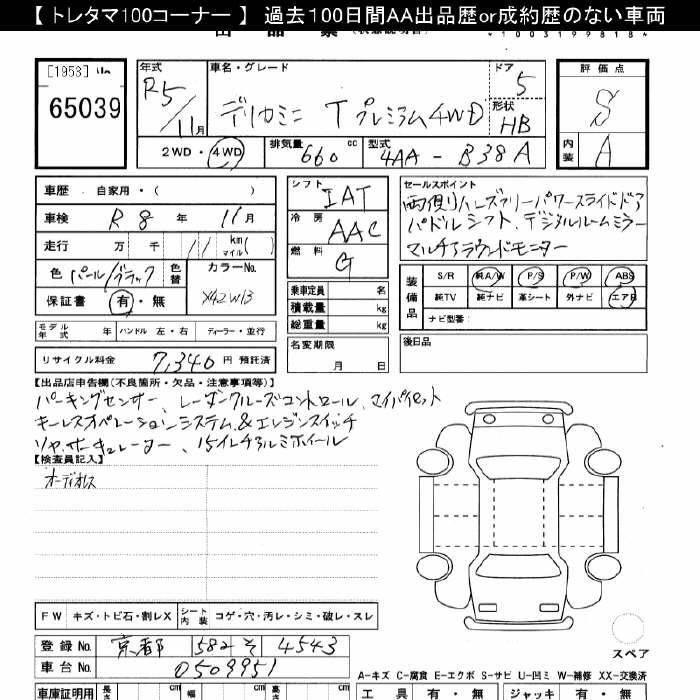 【 トレタマ100コーナー 】 過去100日間AA出品歴or成約歴のない車両
*1003199818*
[1953]
65039
年式
R5/11月
車名・グレード
デリカミニ Tプレミアム4WD
ドア
5
形状
HB
2WD・4WD
排気量 660 cc
型式 4AA-B38A
評価点
S
内装 A
車歴 自家用・( )
車検 R8年 11月
走行 万 千 11 km マイル( )
色 パール/ブラック 色替
カラーNo. X42W13
保証書 有・無
シフト IAT
冷房 AAC
燃料 G
乗車定員 名
積載量 kg
総重量 kg
セールスポイント
両側ハンズフリーパワースライドドア
パドルシフト、デジタルルームミラー
マルチアラウンドモニター
装備品
S/R 純A/W P/S P/W ABS
純TV 純ナビ 革シート 外ナビ エアB
ナビ型番:
モデル年式 年 ハンドル 左・右 ディーラー・並行
リサイクル料金 7,340 円 預託済
名変期限
月 日
後日品
【出品店申告欄(不良箇所・欠品・注意事項等)】
パーキングセンサー、レーダークルーズコントロール、マイパイセット
キーレスオペレーションシステム&エンジンスイッチ
リヤサーキュレーター、15インチアルミホイール
【検査員記入】
オーディオレス
FW キズ・トビ石・割レX
シート内装 コゲ・穴・汚レ・シミ・破レ・スレ
登録No. 京都 582 そ 4543
車台No. 0509951
スペア
A-キズ C-腐食 E-エクボ S-サビ U-凹ミ W-補修 XX-交換済
車庫証明用 長さ cm 幅 cm 高さ cm
工具 有・無 ジャッキ 有・無